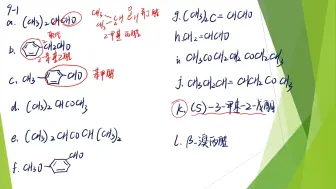 9-1
a. (CH₃)₂CHCHO
CH₃
CH₃
异丁醛
2-甲基丙醛
b. CH₂CHO
苯乙醛
c. CH₃ CHO
d. (CH₃)₂CHCOCH₃
e. (CH₃)₂CHCOCH(CH₃)₂
f. CH₃O CHO
g. (CH₃)₂C=CHCHO
h. CH₂=CHCHO
i. CH₃COCH₂CH₂COCH₂CH₃
j. CH₃CH₂CH=CHCH₂COCH₃
k. (S)-3-甲基-2-戊酮
l. β-溴丙醛